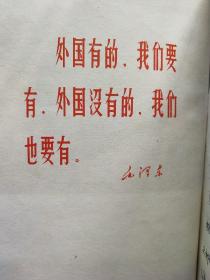 外国有的，我们要
有，外国没有的，我们
也要有。
毛泽东